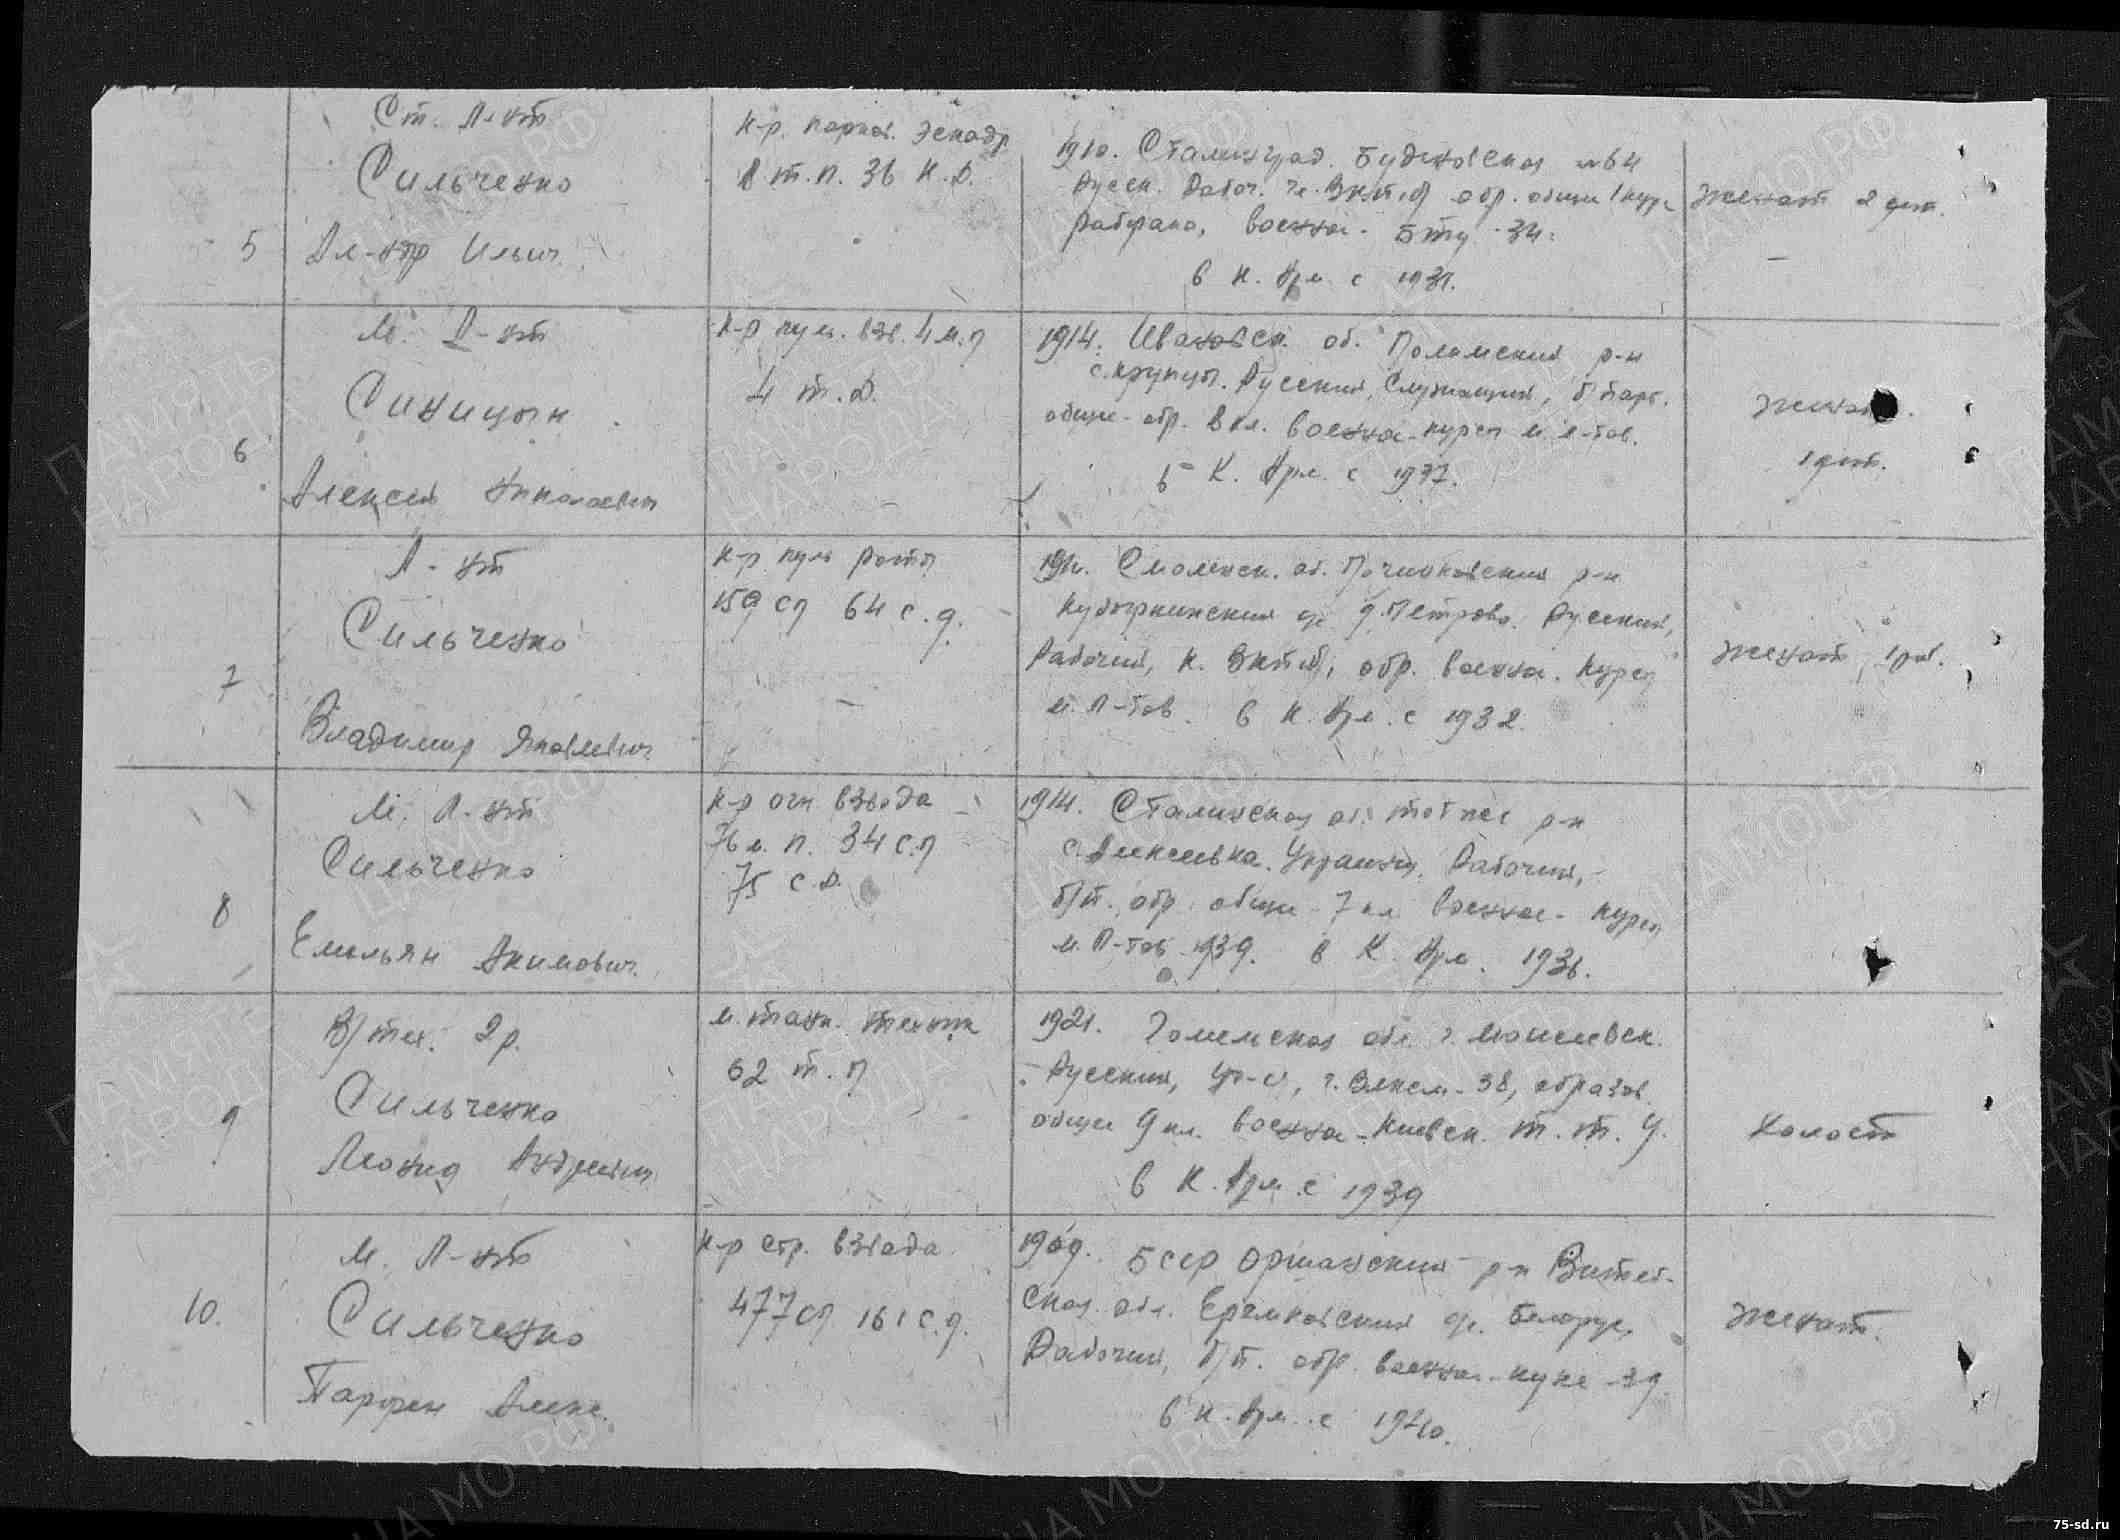 5
Ст. Л-нт
Сильченко
Ал-др Ильич
К-р. парков. Эскадр
8 т.п. 36 К.Д.
1910. Сталинград. №64
Русск. Рабоч. Чл. ВКП(б) обр. общее 1 курс
рабфака, военное - БТУ - 34.
в К. Арм. с 1931.
Женат 2 дет.
6
М. Л-нт
Синицын
Алексей Николаевич
К-р пул. взв. 4 м.п
4 т.Д.
1914. Ивановск. об. р-н
Русский, Служащий, б/парт.
общее - обр. 8 кл. военное - курсы м л-тов.
в К. Арм. с 1937.
Женат.
1 дит.
7
Л-нт
Сильченко
Владимир Яковлевич
К-р пул роты
159 сп 64 с.д.
Смоленск. об. Починковский р-н
д. Петрово. Русский,
Рабочий, К. ВКП(б), обр. военное. курсы
м. Л-тов. в К. Арм. с 1932.
Женат, 1 реб.
8
М. Л-нт
Сильченко
Емельян Акимович.
К-р огн взвода
76 м. п. 34 с.п
75 с.д.
1914. Сталинская об. р-н
с. Алексеевка. Украинец. Рабочий,
б/п. обр. общее - 7 кл военное - курсы
м. Л-тов 1939. в К. Арм. 1936.
9
В/тех. 2 р.
Сильченко
Леонид Андреевич
м. танк. техник
62 т. п
1921. Гомельская обл. г.
Русский, чл. ВЛКСМ - 38, образов.
общее 9 кл. военное - Киевск. Т. Т. У.
в К. Арм. с 1939
Холост
10.
М. Л-нт
Сильченко
Парфен Алекс.
К-р стр. взвода
477 сп 161 с.д.
1909. БССР Оршанский р-н Витеб-
ская обл. Белорус,
Рабочий, б/п. обр. военное - - 39.
в К. Арм. с 1940.
Женат.
ПАМЯТЬ НАРОДА
ЦА МО РФ
75-sd.ru